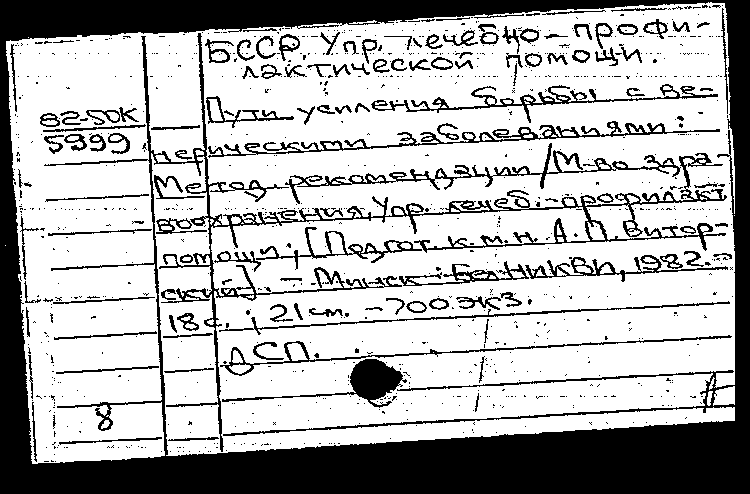 БССР. Упр. лечебно-профи-
лактической помощи.
82-5DK
5999
Пути усиления борьбы с ве-
нерическими заболеваниями:
Метод. рекомендации/М-во здра-
воохранения, Упр. лечеб.-профилакт.
помощи; [Подгот. к.м.н. А.П. Витор-
ский]. - Минск: БелНИКВИ, 1982. -
18 с.; 21 см. - 700 экз.
ДСП.
8